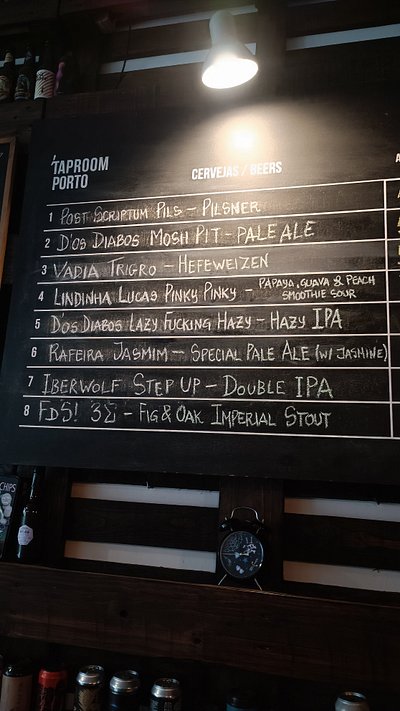 'TAPROOM
PORTO
CERVEJAS / BEERS
A
1 POST SCRIPTUM PILS - PILSNER
2 D'OS DIABOS MOSH PIT - PALE ALE
3 VADIA TRIGRO - HEFEWEIZEN
4 LINDINHA LUCAS PINKY PINKY - PAPAYA, GUAVA & PEACH
SMOOTHIE SOUR
5 D'OS DIABOS LAZY FUCKING HAZY - HAZY IPA
6 RAFEIRA JASMIM - SPECIAL PALE ALE (W/ JASMINE)
7 IBERWOLF STEP UP - DOUBLE IPA
8 FDS! 3Σ - FIG & OAK IMPERIAL STOUT
CHIPS